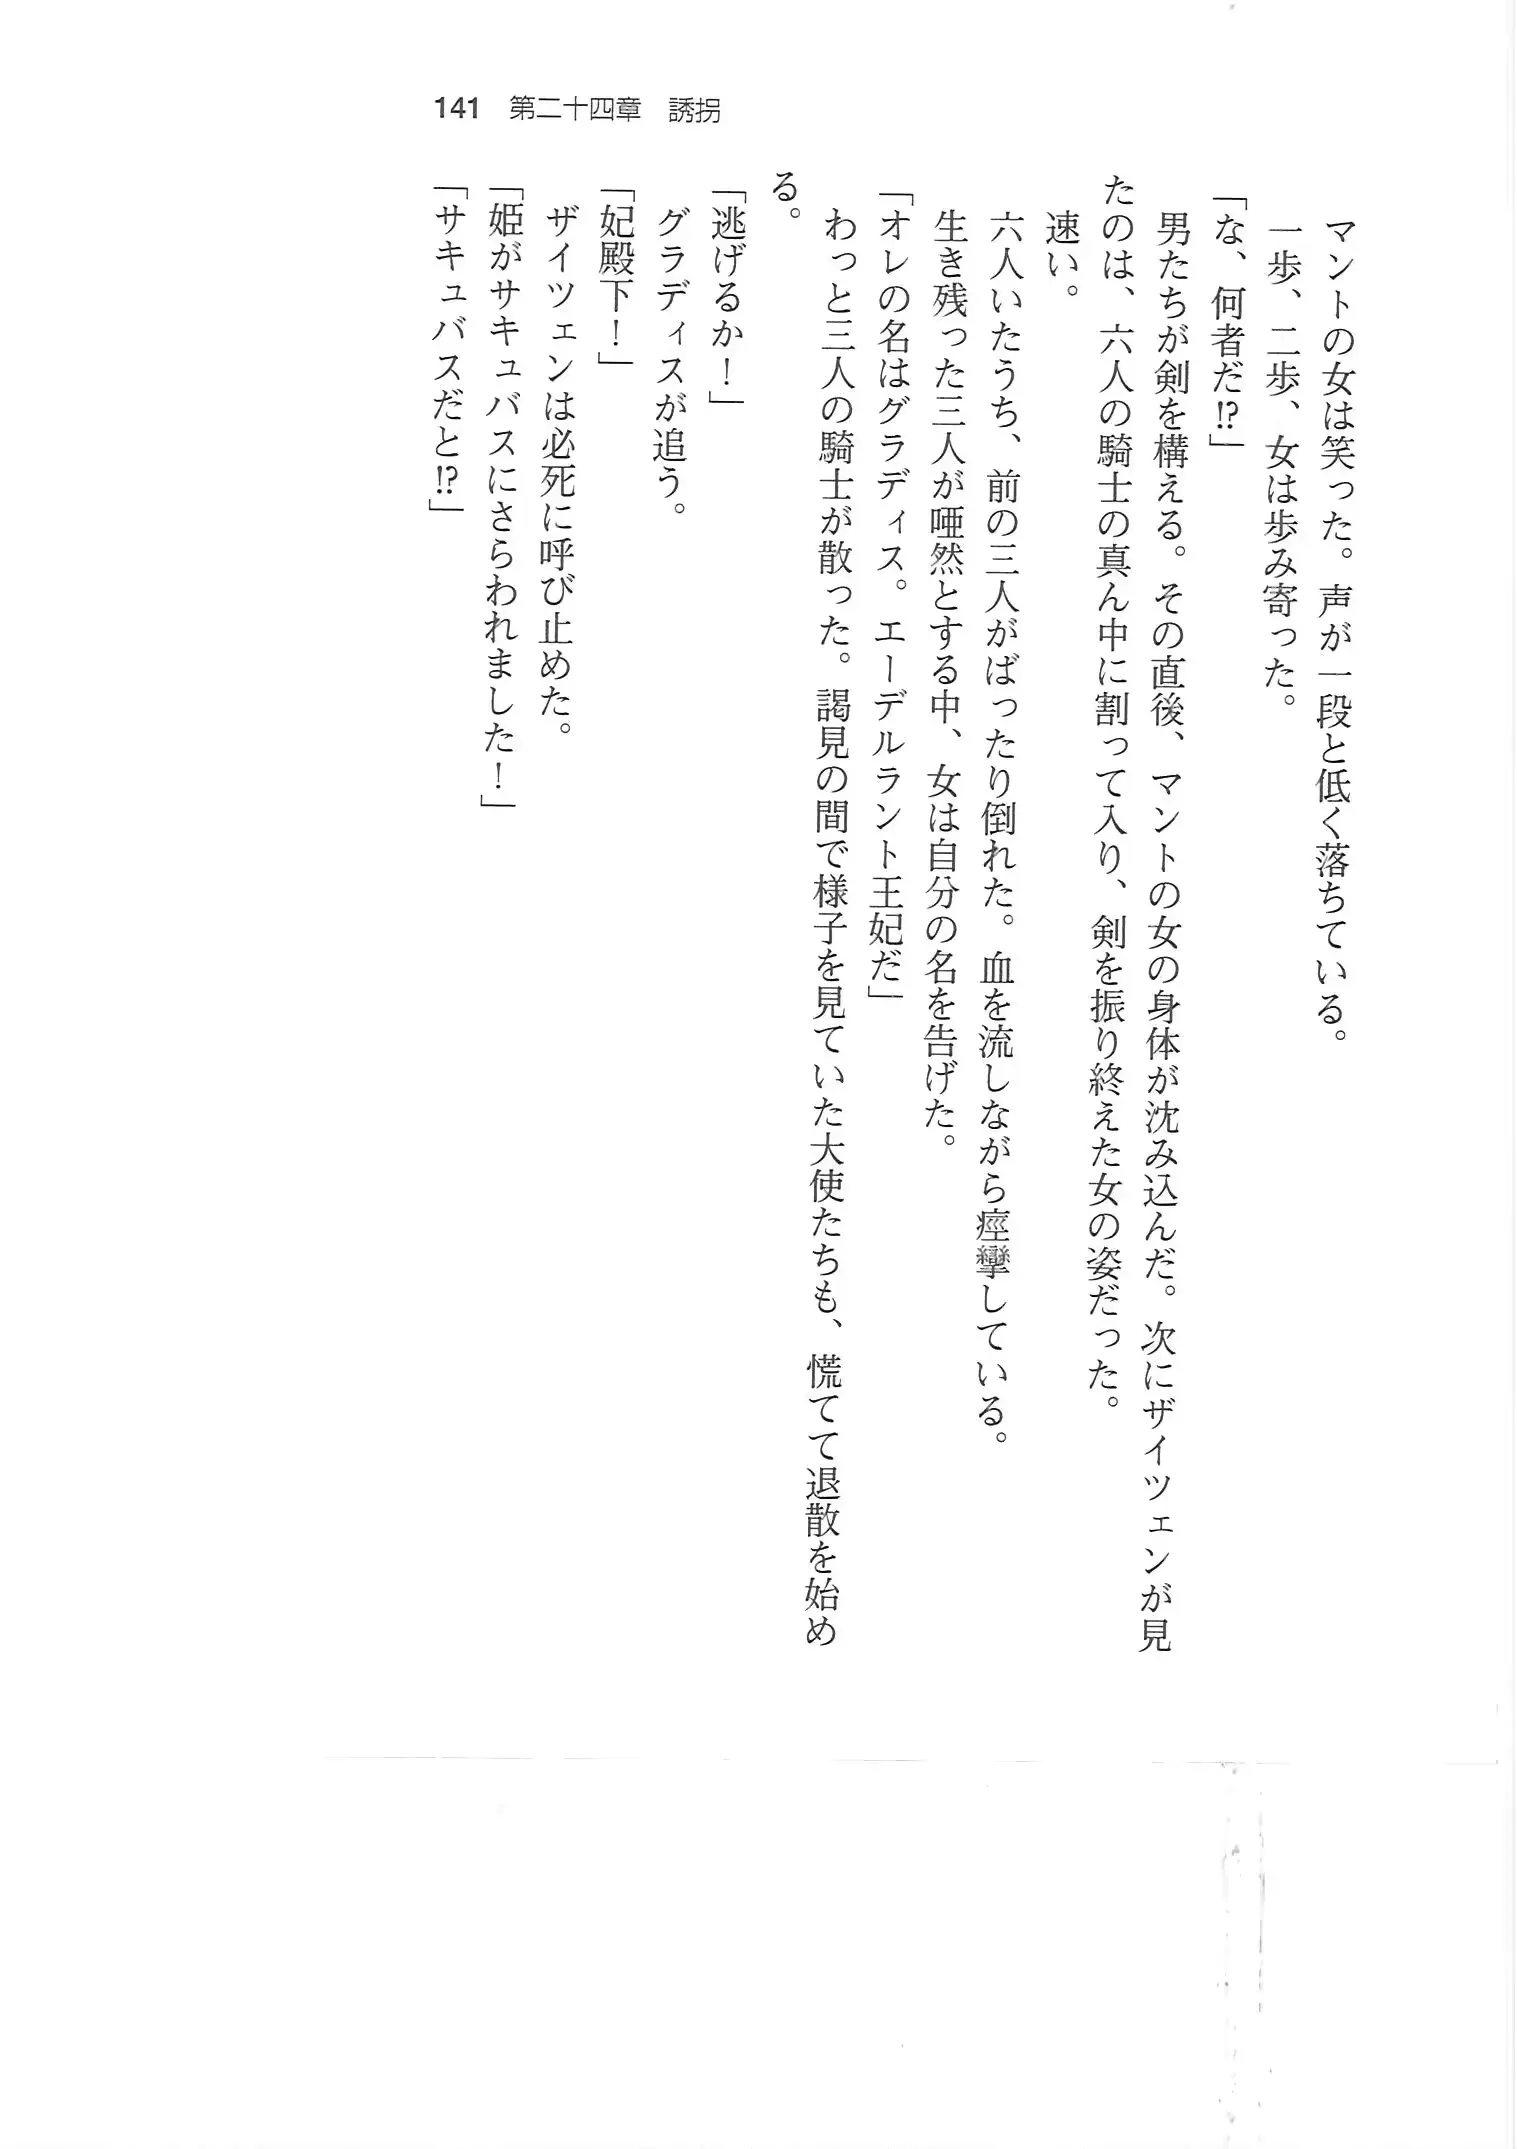 141　第二十四章　誘拐
マントの女は笑った。声が一段と低く落ちている。
一歩、二歩、女は歩み寄った。
「な、何者だ!?」
男たちが剣を構える。その直後、マントの女の身体が沈み込んだ。次にザイツェンが見
たのは、六人の騎士の真ん中に割って入り、剣を振り終えた女の姿だった。
速い。
六人いたうち、前の三人がばったり倒れた。血を流しながら痙攣している。
生き残った三人が唖然とする中、女は自分の名を告げた。
「オレの名はグラディス。エーデルラント王妃だ」
わっと三人の騎士が散った。謁見の間で様子を見ていた大使たちも、慌てて退散を始め
る。
「逃げるか！」
グラディスが追う。
「妃殿下！」
ザイツェンは必死に呼び止めた。
「姫がサキュバスにさらわれました！」
「サキュバスだと!?」